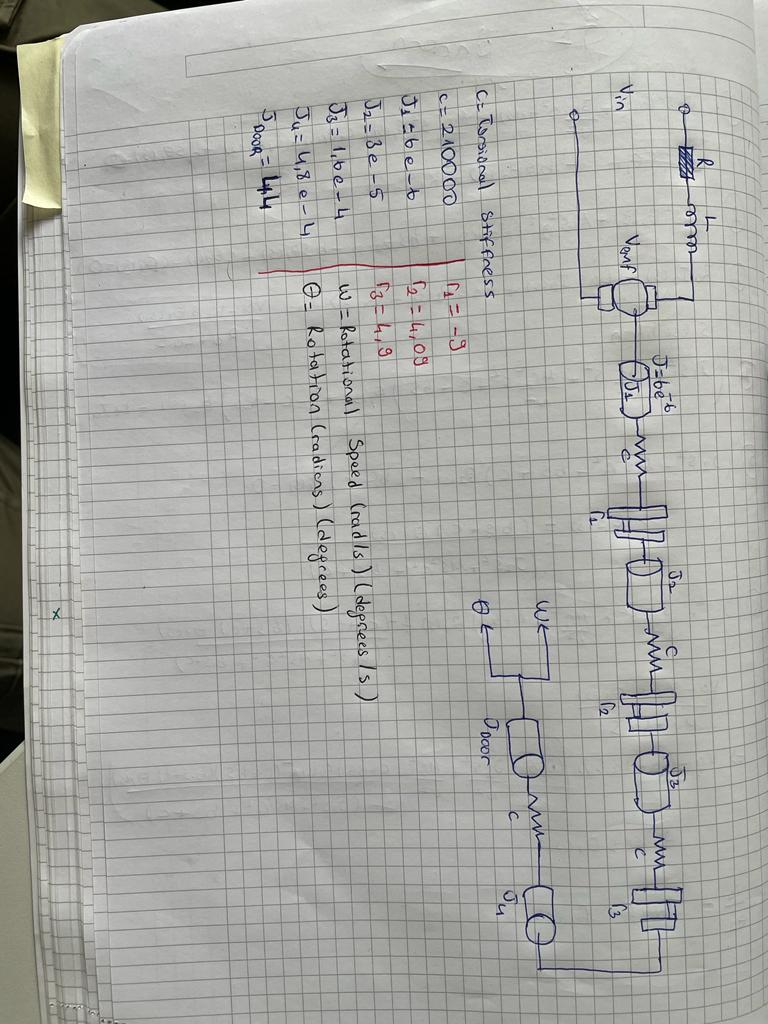 R
L
Vin
Vemf
J=6e-6
J1
c
r1
J2
c
r2
J3
c
r3
w
θ
JDOOR
c
J4
c= Torsional Stiffness
c= 210000
J1 = 6e-6
J2 = 3e-5
J3 = 1,6e-4
J4 = 4,8e-4
JDOOR = 44
r1 = -9
r2 = 4,09
r3 = 4,9
w = Rotational Speed (rad/s) (degrees/s)
θ = Rotation (radians) (degrees)
x